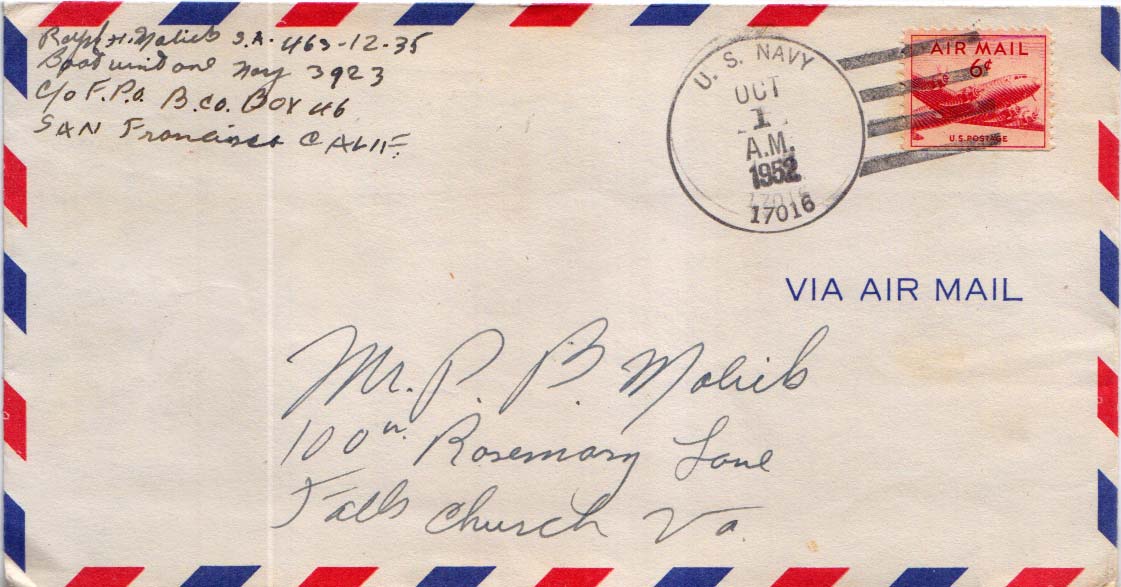 Ralph H. Malieb S.A. 463-12-35
Boat unit one Navy 3923
C/o F.P.O. B.Co. BOX 46
SAN Francisco CALIF.
U. S. NAVY
OCT
1
A.M.
1952
17016
AIR MAIL
6¢
U.S. POSTAGE
VIA AIR MAIL
Mr. P. B. Malieb
100 W. Rosemary Lane
Falls Church Va.